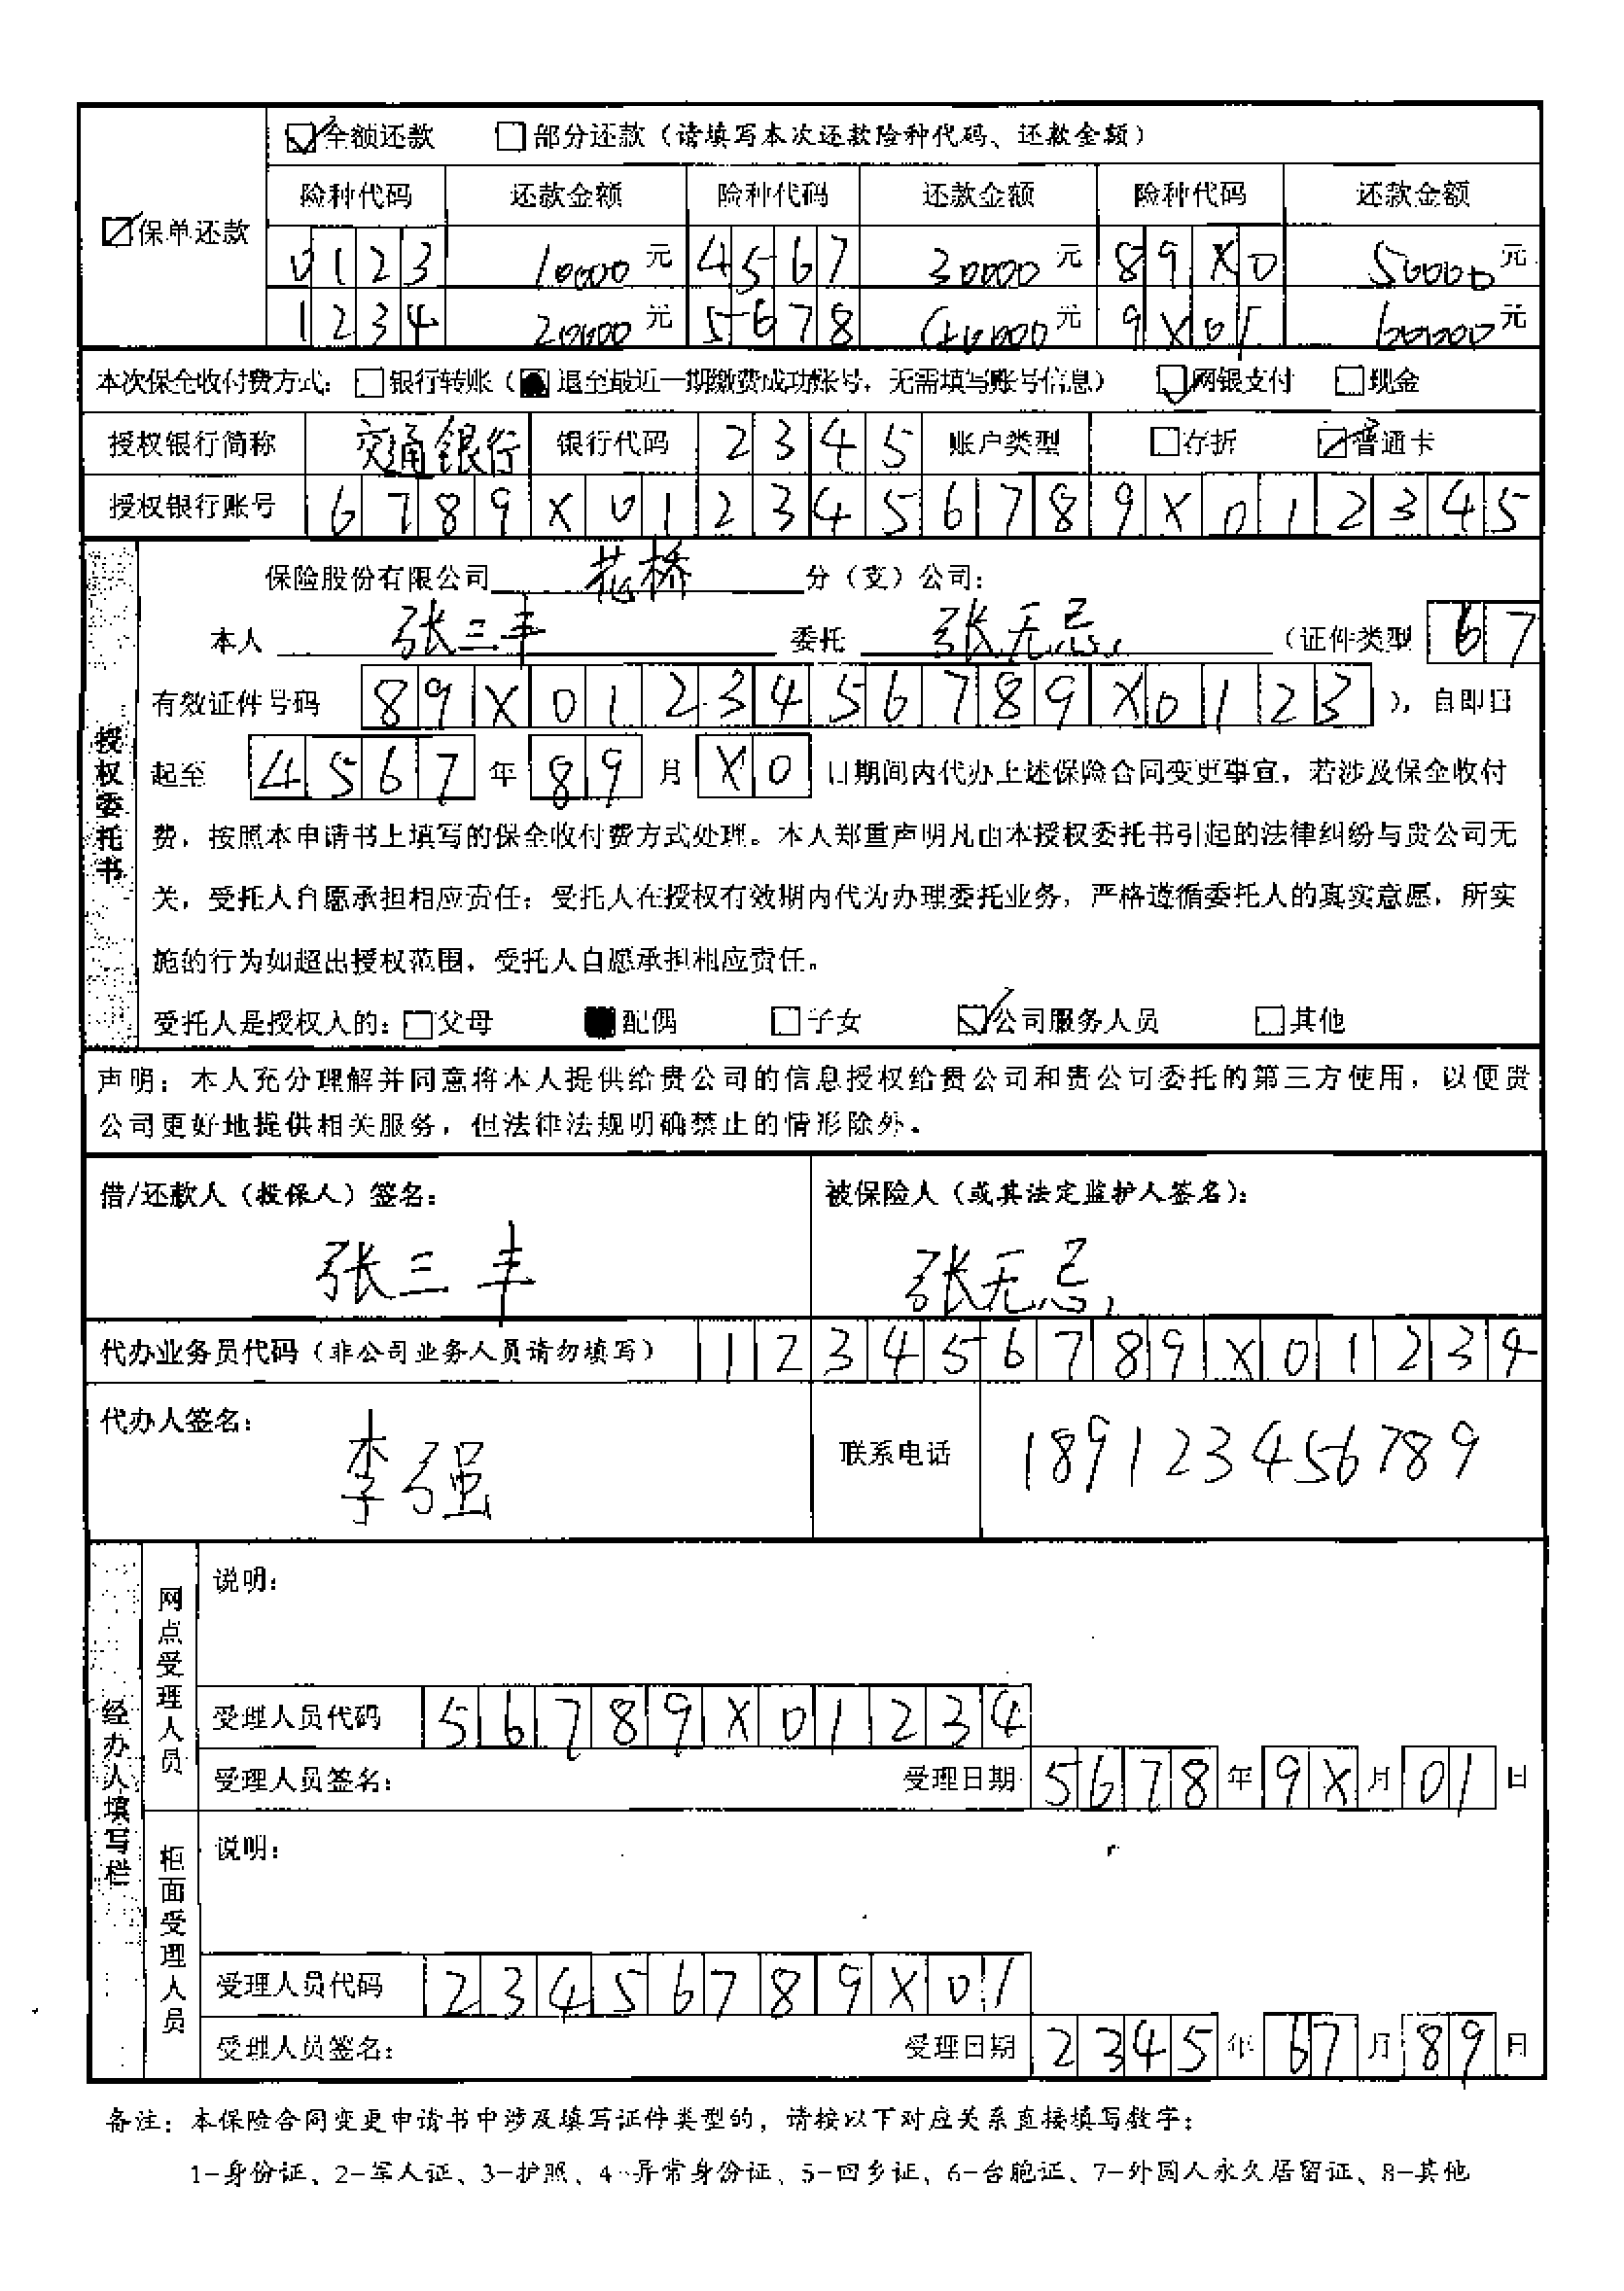 ☑全额还款 □部分还款（请填写本次还款险种代码、还款金额）
☑保单还款
险种代码 还款金额 险种代码 还款金额 险种代码 还款金额
0123 10000元 4567 30000元 89X0 50000元
1234 20000元 5678 40000元 9X01 60000元
本次保全收付费方式：□银行转账（■退至最近一期缴费成功账号，无需填写账号信息） ☑网银支付 □现金
授权银行简称 交通银行 银行代码 2345 账户类型 □存折 ☑普通卡
授权银行账号 6789X0123456789X012345
授权委托书
保险股份有限公司 花桥 分（支）公司：
本人 张三丰 委托 张无忌 （证件类型 67
有效证件号码 89X0123456789X0123 ），自即日
起至 4567 年 89 月 X0 日期间内代办上述保险合同变更事宜，若涉及保全收付
费，按照本申请书上填写的保全收付费方式处理。本人郑重声明凡由本授权委托书引起的法律纠纷与贵公司无
关，受托人自愿承担相应责任；受托人在授权有效期内代为办理委托业务，严格遵循委托人的真实意愿，所实
施的行为如超出授权范围，受托人自愿承担相应责任。
受托人是授权人的：□父母 ■配偶 □子女 ☑公司服务人员 □其他
声明：本人充分理解并同意将本人提供给贵公司的信息授权给贵公司和贵公司委托的第三方使用，以便贵
公司更好地提供相关服务，但法律法规明确禁止的情形除外。
借/还款人（投保人）签名： 被保险人（或其法定监护人签名）：
张三丰 张无忌
代办业务员代码（非公司业务人员请勿填写） 123456789X01234
代办人签名： 李强 联系电话 189123456789
经办人填写栏
网点受理人员
说明：
受理人员代码 56789X01234
受理人员签名： 受理日期 5678年9X月01日
柜面受理人员
说明：
受理人员代码 23456789X01
受理人员签名： 受理日期 2345年67月89日
备注：本保险合同变更申请书中涉及填写证件类型的，请按以下对应关系直接填写数字：
1-身份证、2-军人证、3-护照、4-异常身份证、5-回乡证、6-台胞证、7-外国人永久居留证、8-其他